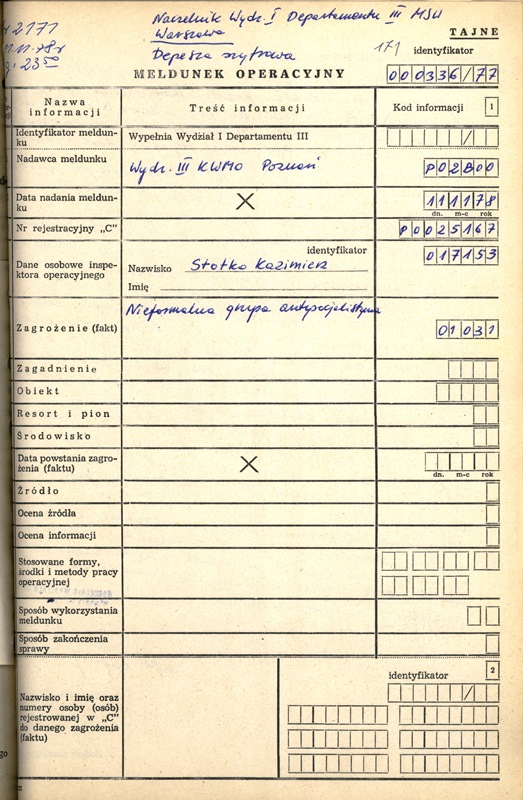 2171
Naczelnik Wydz. I Departamentu III MSW
11.11.78r
Warszawa
TAJNE
23⁵⁰
Depesza szyfrowa
171
identyfikator
MELDUNEK OPERACYJNY
000336/77
Nazwa informacji
Treść informacji
Kod informacji
1
Identyfikator meldun-
ku
Wypełnia Wydział I Departamentu III
/
Nadawca meldunku
Wydz. III KWMO Poznań
P02800
Data nadania meldun-
ku
111178
dn. m-c rok
Nr rejestracyjny „C”
P0025167
Dane osobowe inspe-
ktora operacyjnego
identyfikator
Nazwisko Stotko Kazimierz
017153
Imię
Zagrożenie (fakt)
Nieformalna grupa antysocjalistyczna
01031
Zagadnienie
Obiekt
Resort i pion
Środowisko
Data powstania zagro-
żenia (faktu)
dn. m-c rok
Źródło
Ocena źródła
Ocena informacji
Stosowane formy,
środki i metody pracy
operacyjnej
Sposób wykorzystania
meldunku
Sposób zakończenia
sprawy
2
identyfikator
/
Nazwisko i imię oraz
numery osoby (osób)
rejestrowanej w „C”
do danego zagrożenia
(faktu)